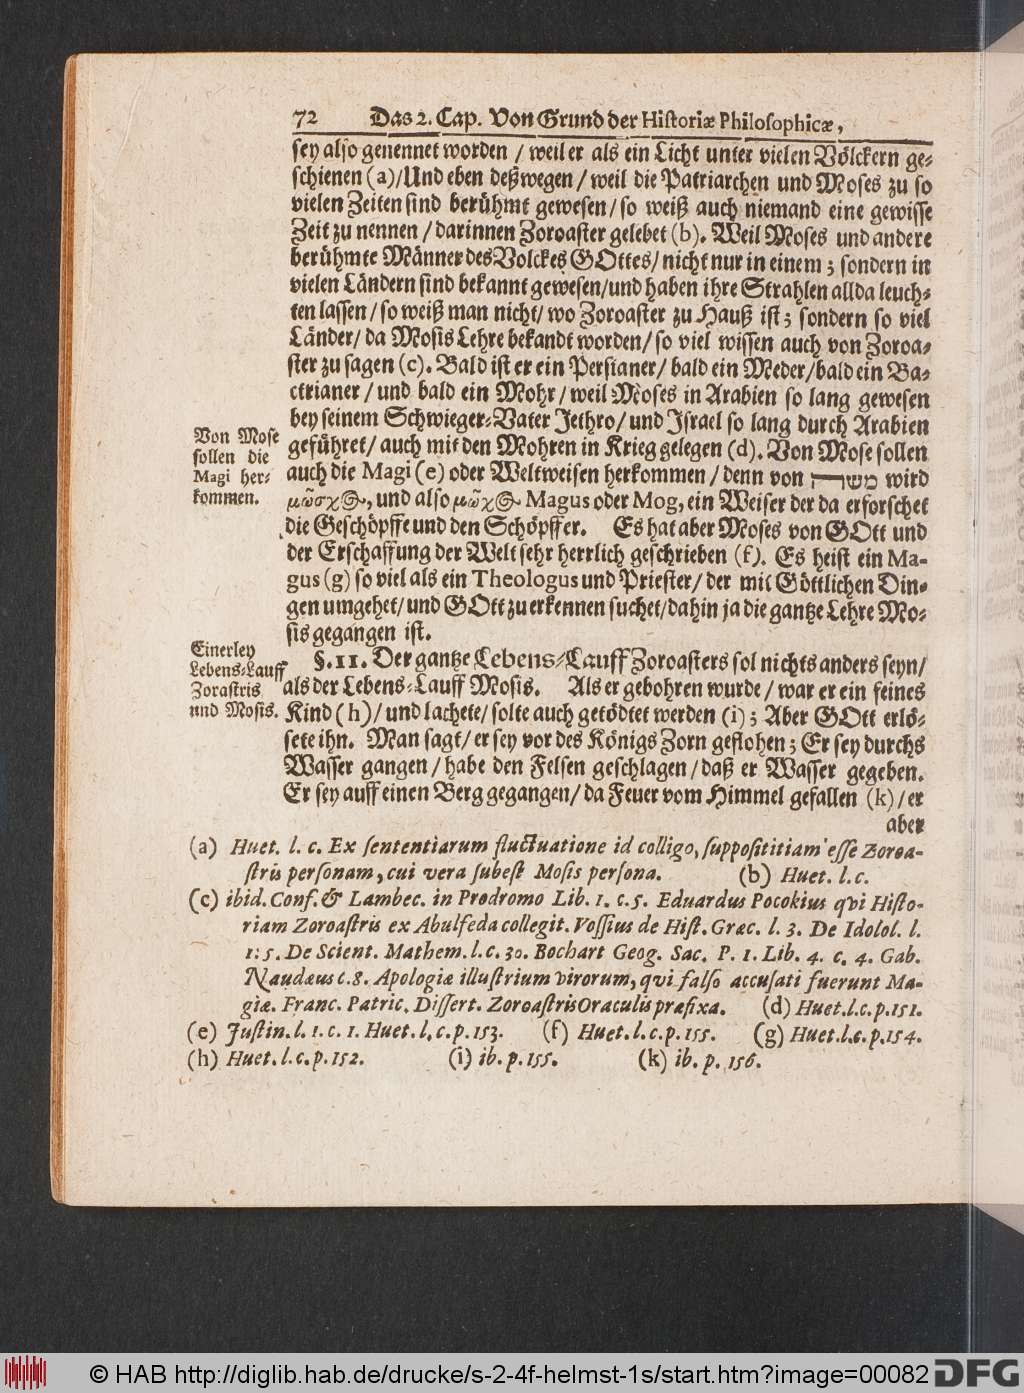 72 Das 2. Cap. Von Grund der Historiæ Philosophicæ,
sey also genennet worden / weil er als ein Licht unter vielen Völckern ge-
schienen (a)/Und eben deßwegen / weil die Patriarchen und Moses zu so
vielen Zeiten sind berühmt gewesen/ so weiß auch niemand eine gewisse
Zeit zu nennen / darinnen Zoroaster gelebet (b). Weil Moses und andere
berühmte Männer des Volckes GOttes/ nicht nur in einem ; sondern in
vielen Ländern sind bekannt gewesen/und haben ihre Strahlen allda leuch-
ten lassen / so weiß man nicht/ wo Zoroaster zu Hauß ist ; sondern so viel
Länder/ da Mosis Lehre bekandt worden/ so viel wissen auch von Zoroa-
ster zu sagen (c). Bald ist er ein Persianer/ bald ein Meder/bald ein Ba-
ctrianer / und bald ein Mohr / weil Moses in Arabien so lang gewesen
bey seinem Schwieger-Vater Jethro/ und Israel so lang durch Arabien
Von Mose
sollen die
Magi her-
kommen.
geführet/ auch mit den Mohren in Krieg gelegen (d). Von Mose sollen
auch die Magi (e) oder Weltweisen herkommen / denn von משרה wird
μῶσχος, und also μῶχος Magus oder Mog, ein Weiser der da erforschet
die Geschöpffe und den Schöpffer. Es hat aber Moses von GOtt und
der Erschaffung der Welt sehr herrlich geschrieben (f). Es heist ein Ma-
gus (g) so viel als ein Theologus und Priester/ der mit Göttlichen Din-
gen umgehet/ und GOtt zu erkennen suchet/ dahin ja die gantze Lehre Mo-
sis gegangen ist.
Einerley
Lebens-Lauff
Zorastris
und Mosis.
§. 11. Der gantze Lebens-Lauff Zoroasters sol nichts anders seyn/
als der Lebens-Lauff Mosis. Als er gebohren wurde / war er ein feines
Kind (h)/ und lachete/ solte auch getödtet werden (i) ; Aber GOtt erlö-
sete ihn. Man sagt/ er sey vor des Königs Zorn geflohen ; Er sey durchs
Wasser gangen / habe den Felsen geschlagen / daß er Wasser gegeben.
Er sey auff einen Berg gegangen/ da Feuer vom Himmel gefallen (k) / er
aber
(a) Huet. l. c. Ex sententiarum fluctuatione id colligo, supposititiam esse Zoroa-
stris personam, cui vera subest Mosis persona. (b) Huet. l. c.
(c) ibid. Conf. & Lambec. in Prodromo Lib. 1. c. 5. Eduardus Pocokius qvi Histo-
riam Zoroastris ex Abulfeda collegit. Vossius de Hist. Græc. l. 3. De Idolol. l.
1: 5. De Scient. Mathem. l. c. 30. Bochart Geog. Sac. P. 1. Lib. 4. c. 4. Gab.
Naudæus c. 8. Apologiæ illustrium virorum, qvi falso accusati fuerunt Ma-
giæ. Franc. Patric. Dissert. Zoroastris Oraculis præfixa. (d) Huet. l. c. p. 151.
(e) Justin. l. 1. c. 1. Huet. l. c. p. 153. (f) Huet. l. c. p. 155. (g) Huet. l. c. p. 154.
(h) Huet. l. c. p. 152. (i) ib. p. 155. (k) ib. p. 156.
© HAB http://diglib.hab.de/drucke/s-2-4f-helmst-1s/start.htm?image=00082 DFG